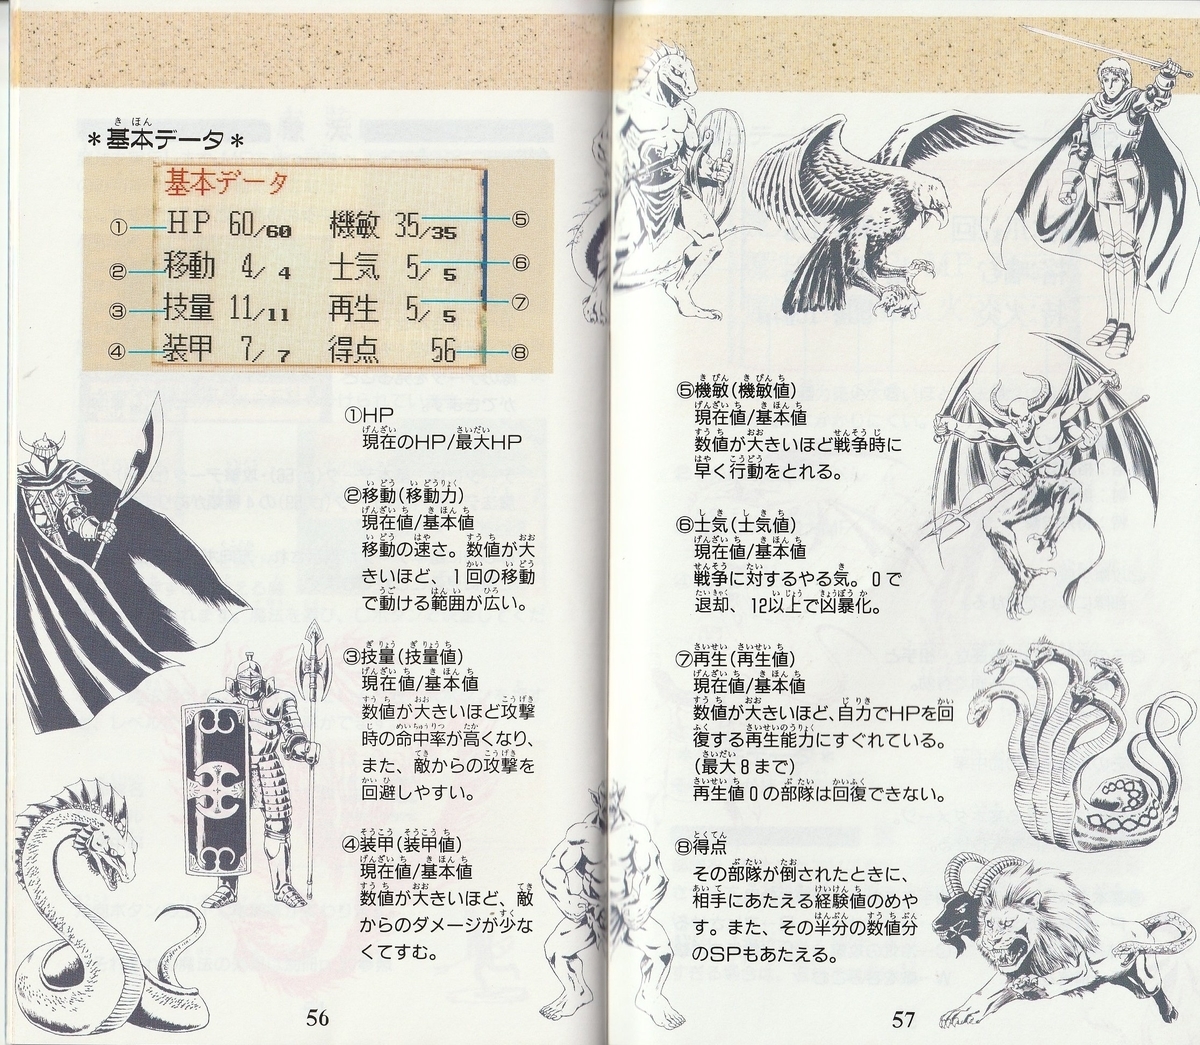 ＊基本データ＊
基本データ
① HP 60/60 機敏 35/35 ⑤
② 移動 4/ 4 士気 5/ 5 ⑥
③ 技量 11/11 再生 5/ 5 ⑦
④ 装甲 7/ 7 得点 56 ⑧
①HP
現在のHP/最大HP
②移動(移動力)
現在値/基本値
移動の速さ。数値が大
きいほど、1回の移動
で動ける範囲が広い。
③技量(技量値)
現在値/基本値
数値が大きいほど攻撃
時の命中率が高くなり、
また、敵からの攻撃を
回避しやすい。
④装甲(装甲値)
現在値/基本値
数値が大きいほど、敵
からのダメージが少な
くてすむ。
56
⑤機敏(機敏値)
現在値/基本値
数値が大きいほど戦争時に
早く行動をとれる。
⑥士気(士気値)
現在値/基本値
戦争に対するやる気。0で
退却、12以上で凶暴化。
⑦再生(再生値)
現在値/基本値
数値が大きいほど、自力でHPを回
復する再生能力にすぐれている。
(最大8まで)
再生値0の部隊は回復できない。
⑧得点
その部隊が倒されたときに、
相手にあたえる経験値のめや
す。また、その半分の数値分
のSPもあたえる。
57